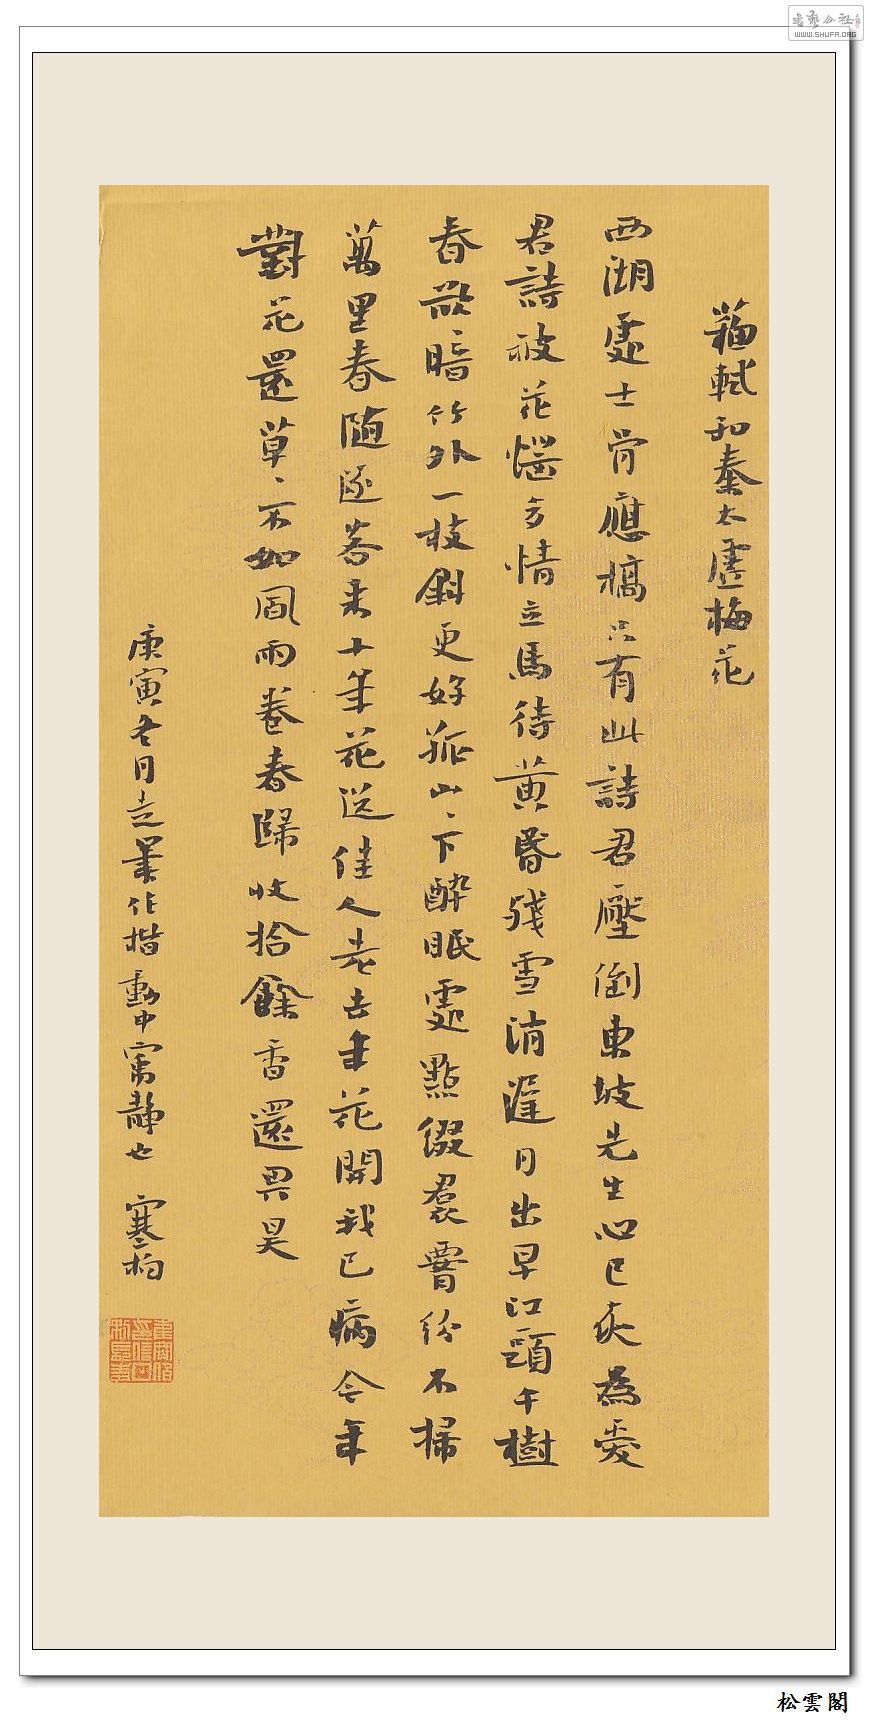 書藝公社
WWW.SHUFA.ORG
蘇軾和秦太虛梅花
西湖處士骨應槁只有此詩君壓倒東坡先生心已灰為愛
君詩被花惱多情立馬待黃昏殘雪消遲月出早江頭千樹
春欲暗竹外一枝斜更好孤山、下醉眠處點綴裠腰紛不掃
萬里春隨逐客來十年花送佳人老去年花開我已病今年
對花還草、不如風雨卷春歸收拾餘香還畀昊
庚寅冬月走筆作楷動中寓靜也 寒柏
松雲閣